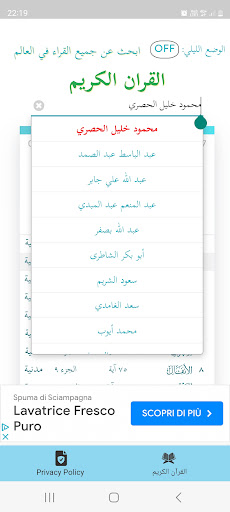 22:19
91%
الوضع الليلي: OFF ابحث عن جميع القراء في العالم
القران الكريم
محمود خليل الحصري
محمود خليل الحصري
عبد الباسط عبد الصمد
عبد الله علي جابر
عبد المنعم عبد المبدي
عبد الله بصفر
أبو بكر الشاطرى
سعود الشريم
سعد الغامدي
محمد أيوب
٨ الأنفال ٧٥ آية الجزء ٩ مدنية
Spuma di Sciampagna
Lavatrice Fresco
Puro
SCOPRI DI PIÙ
Privacy Policy
القرآن الكريم